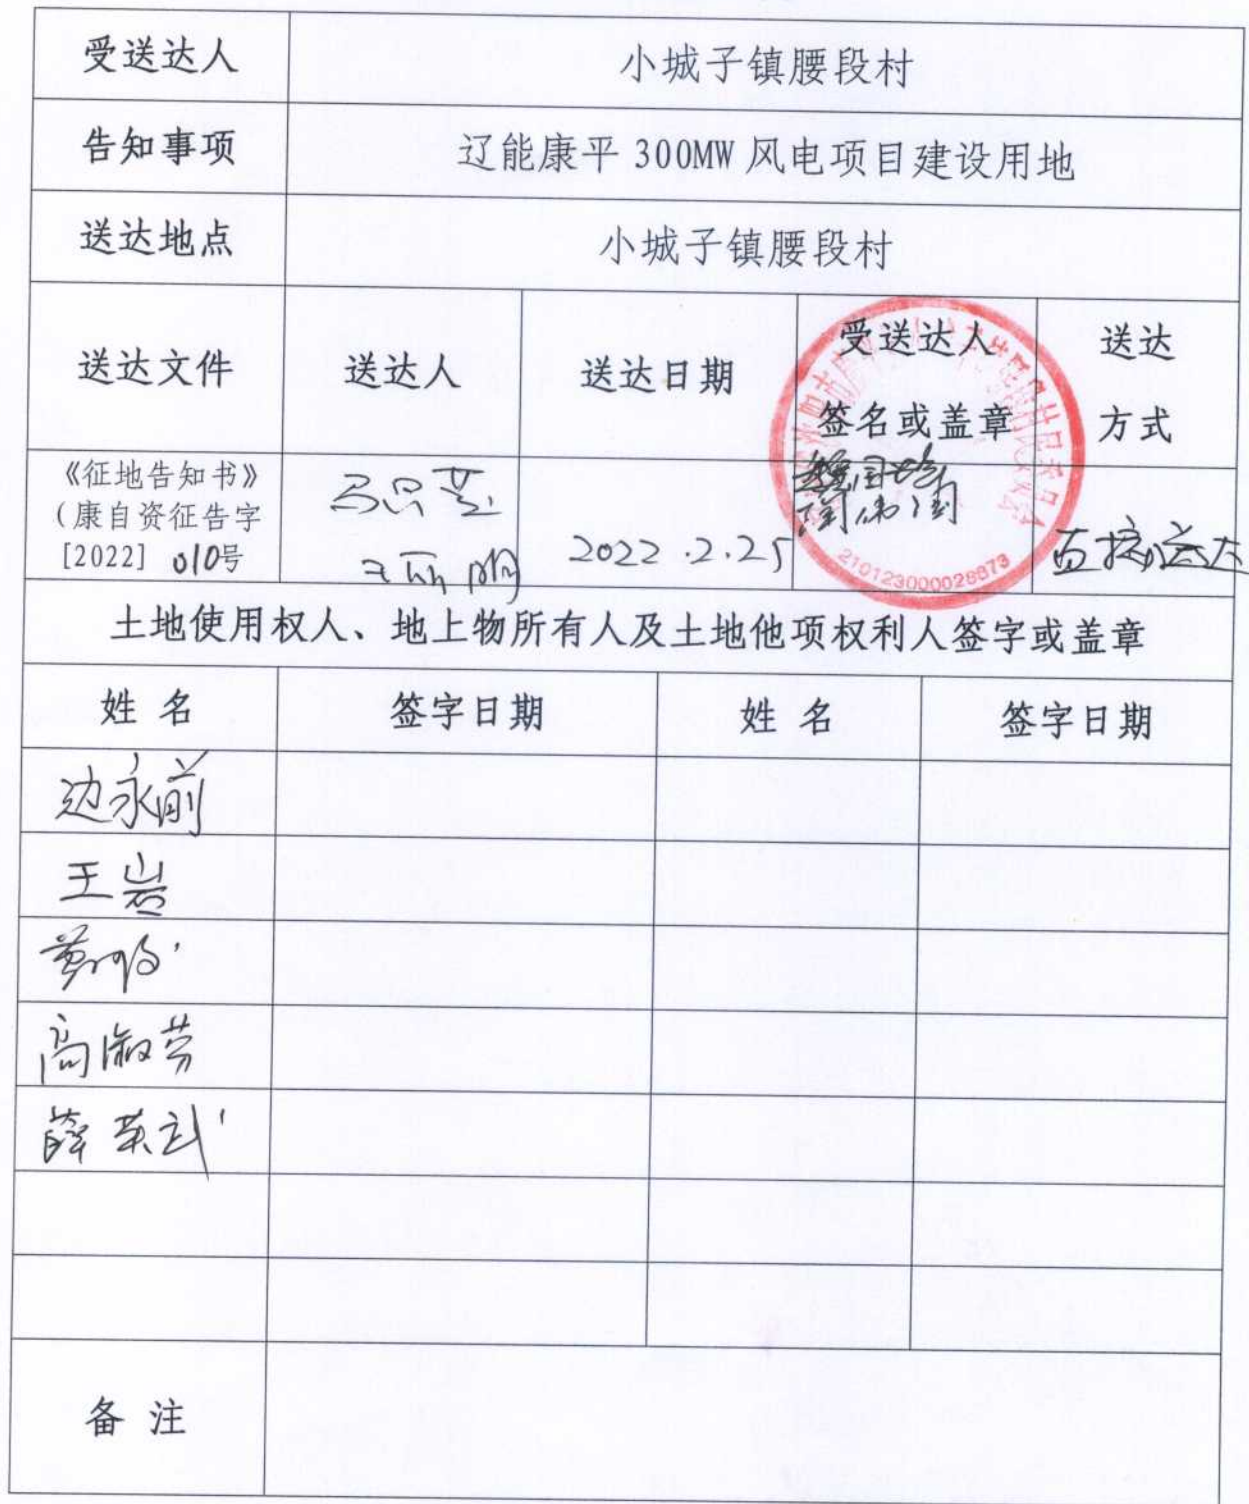 受送达人 小城子镇腰段村
告知事项 辽能康平 300MW 风电项目建设用地
送达地点 小城子镇腰段村
送达文件 送达人 送达日期 受送达人 送达
签名或盖章 方式
《征地告知书》
(康自资征告字
[2022] 010号
2022.2.25 直接送达
210123000028873
土地使用权人、地上物所有人及土地他项权利人签字或盖章
姓 名 签字日期 姓 名 签字日期
边永前
王岩
高淑芬
薛英武
备 注